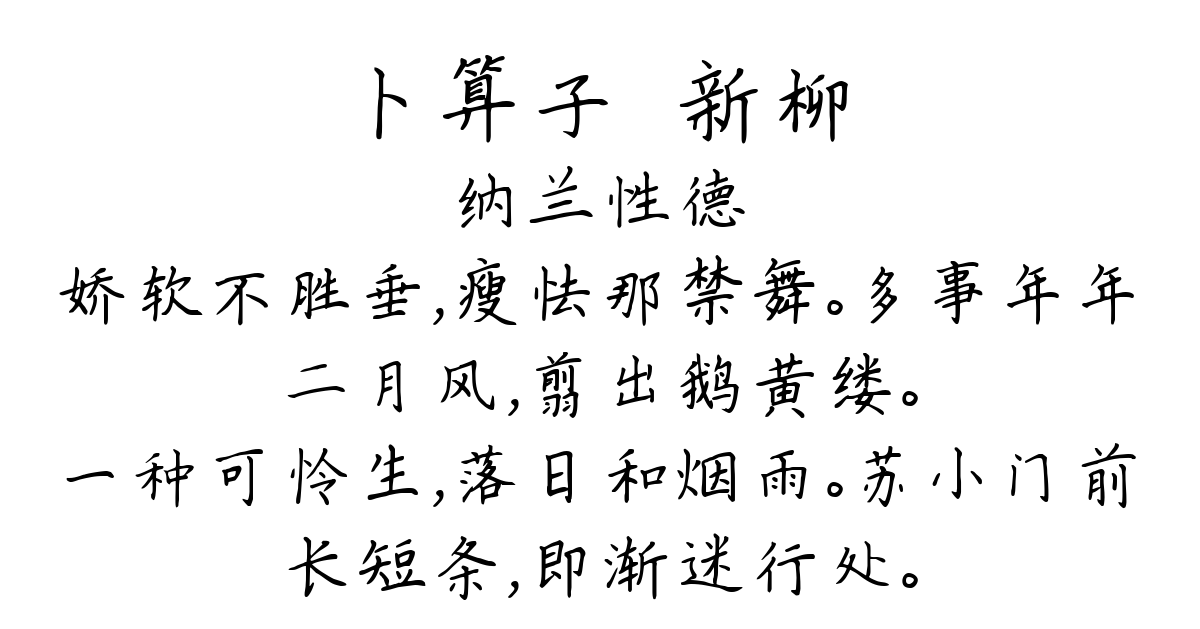 卜算子 新柳
纳兰性德
娇软不胜垂,瘦怯那禁舞。多事年年
二月风,翦出鹅黄缕。
一种可怜生,落日和烟雨。苏小门前
长短条,即渐迷行处。